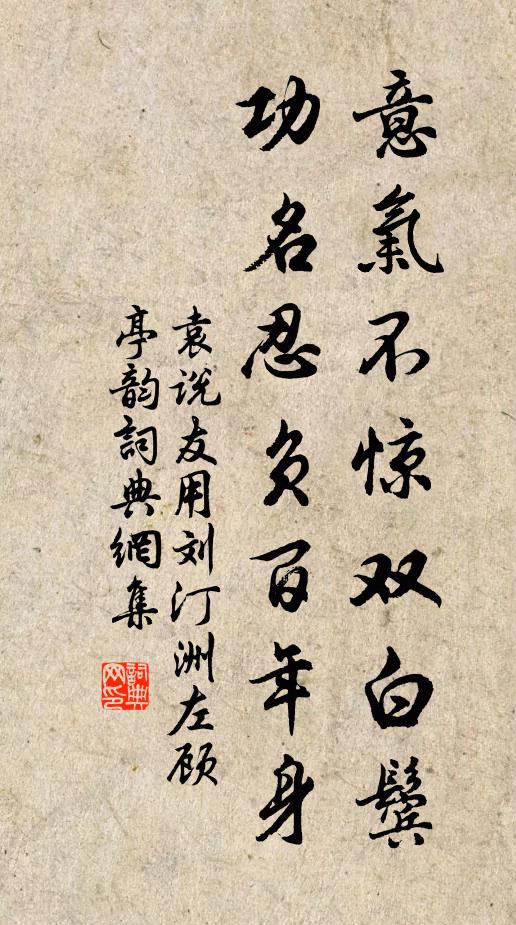 意氣不惊双白鬓
功名忍负百年身
袁说友用刘汀洲左顾
亭韵詞典網集
詞典網印